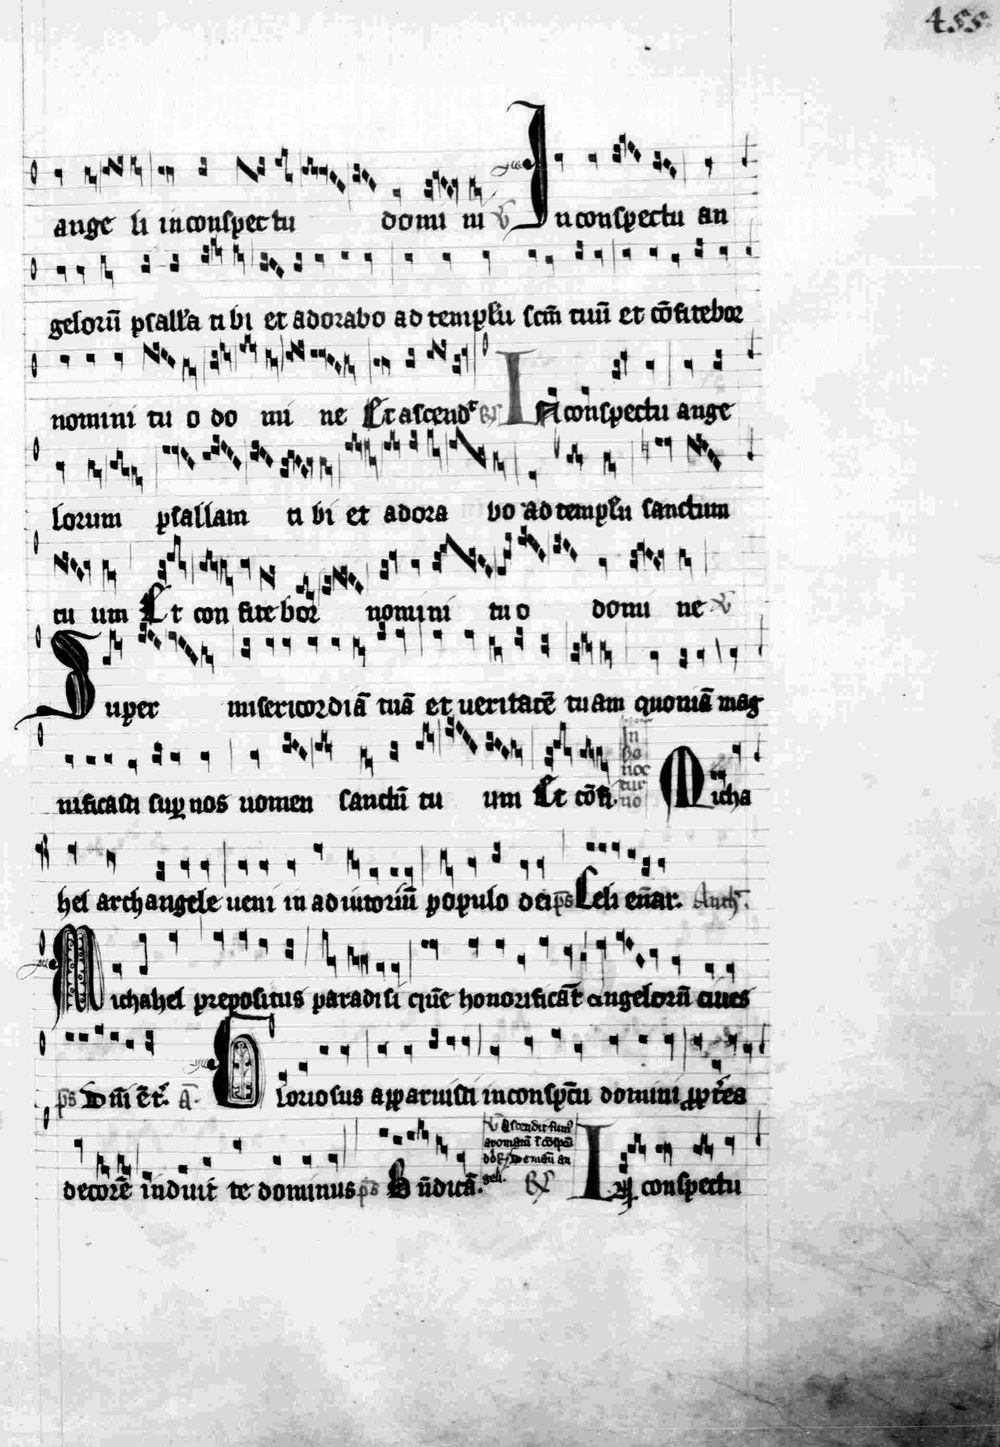 455
ange li in conspectu domi ni ℣ In conspectu an
gelorū psallā ti bi et adorabo ad templū scm̄ tuū et cōfitebor
nomini tu o do mi ne Et ascend' ℟ In conspectu ange
lorum psallam ti bi et adora bo ad templū sanctum
tu um Et con fite bor nomini tu o domi ne ℣
Super misericordiā tuā et veritatē tu am quoniā mag
nificasti sup nos nomen sanctū tu um Et cōfi. In noc tur no Micha
hel archangele veni in adiutoriū populo dei ps Celi enar. Anth.
Michahel prepositus paradisi quē honorificāt angelorū cives
ps Dn̄i ēt. ā. Gloriosus apparuisti in conspcū domini ppterea
decorē induit te dominus ps Bn̄dicā. ℣ Ascendit fum' ℟ In conspectu